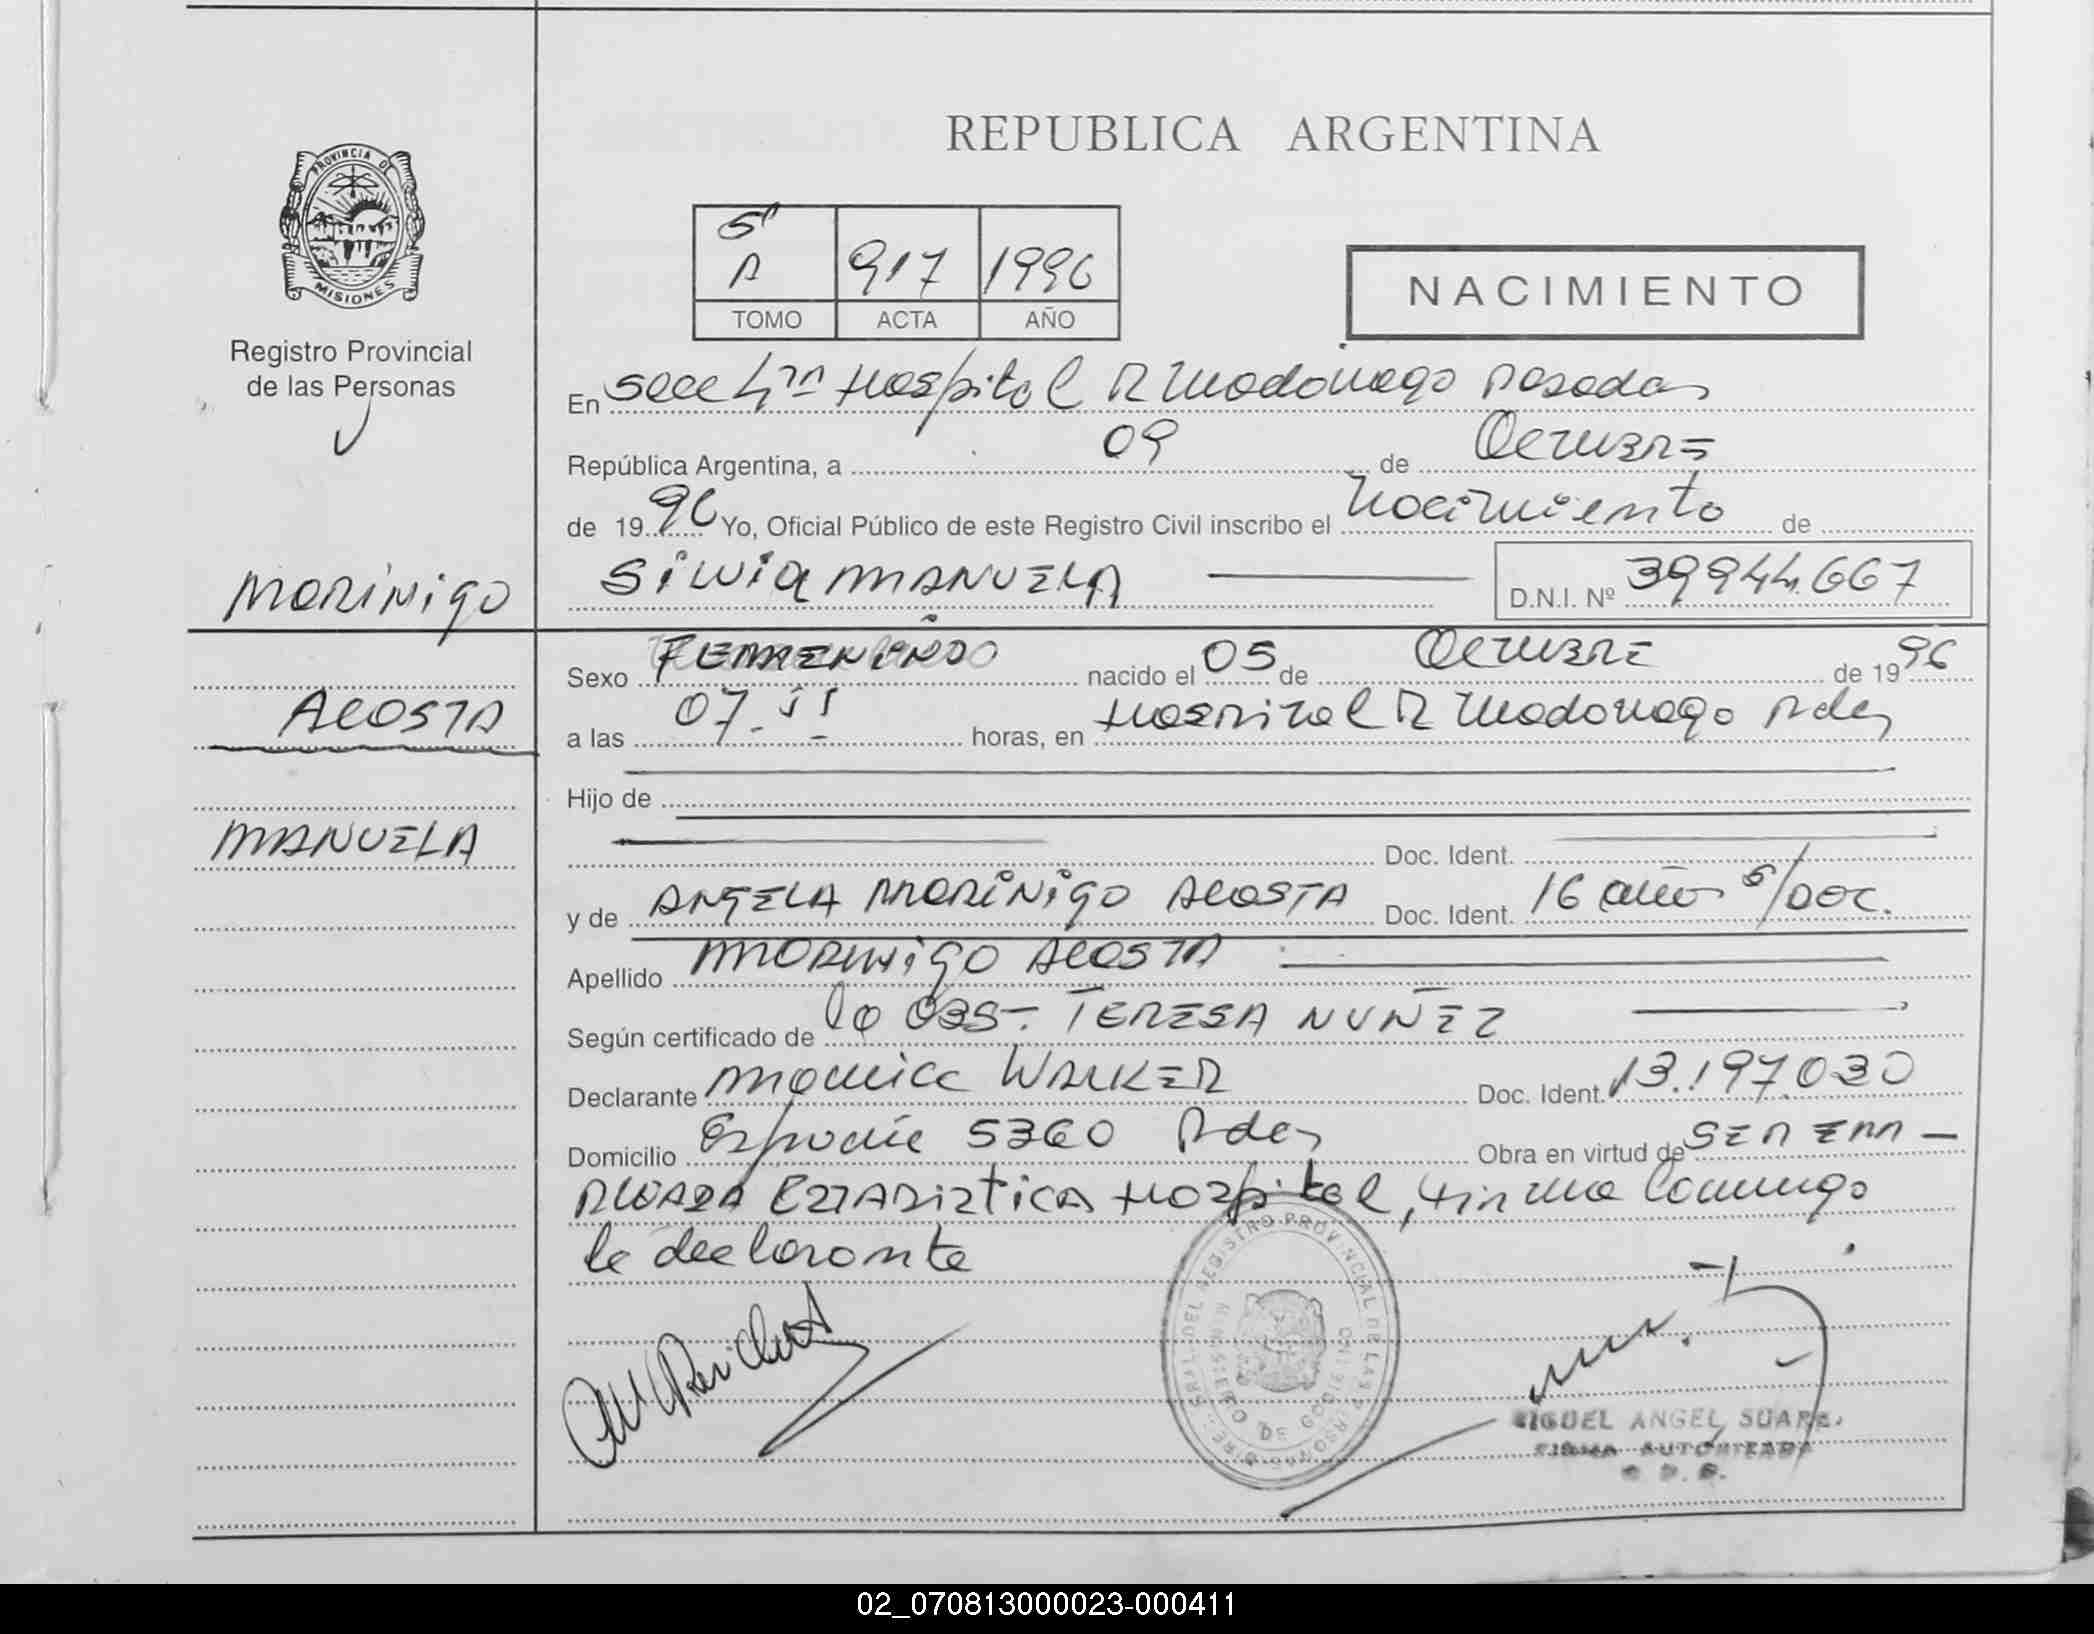 REPUBLICA ARGENTINA
PROVINCIA DE
MISIONES
Registro Provincial
de las Personas
5ª
A 917 1996
TOMO ACTA AÑO
NACIMIENTO
En Secc 4ta Hospital R Madariaga Posadas
República Argentina, a 09 de Octubre
de 1996 Yo, Oficial Público de este Registro Civil inscribo el Nacimiento de
MORINIGO
SilviA MANUELA D.N.I. Nº 39944.667
Sexo FEMENINO nacido el 05 de Octubre de 1996
ACOSTA
a las 07- horas, en Hospital R Madariaga Pdas
Hijo de
MANUELA
Doc. Ident.
y de ANGELA MORINIGO ACOSTA Doc. Ident. 16 años s/DOC.
Apellido MORINIGO ACOSTA
Según certificado de la OBS-. TERESA NUÑEZ
Declarante Monica WALKER Doc. Ident. 13.197.030
Domicilio 5360 Pdas Obra en virtud de SER EM-
PLEADA ESTADISTICA Hospital, firma conmigo
la declarante
REGISTRO PROVINCIAL DE LAS PERSONAS
MIGUEL ANGEL SUARE
FIRMA AUTORIZADA
02_070813000023-000411